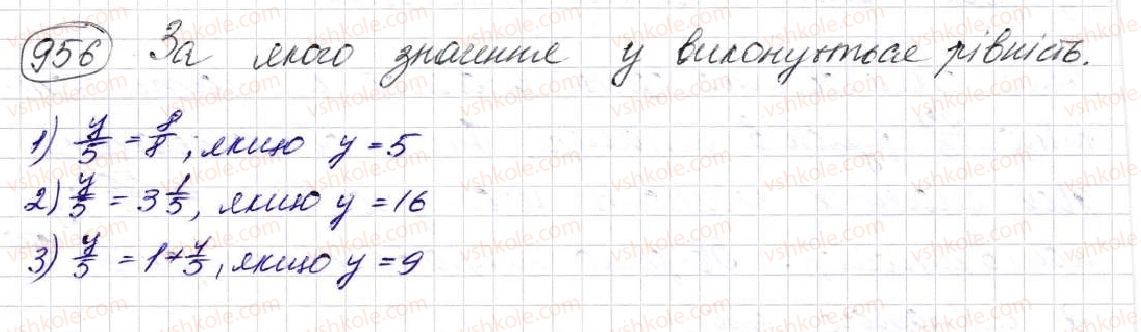 956 За якого значення y виконується рівність.
1) y/5 = 8/8, якщо y = 5
2) y/5 = 3 1/5, якщо y = 16
3) y/5 = 1 + 4/5, якщо y = 9